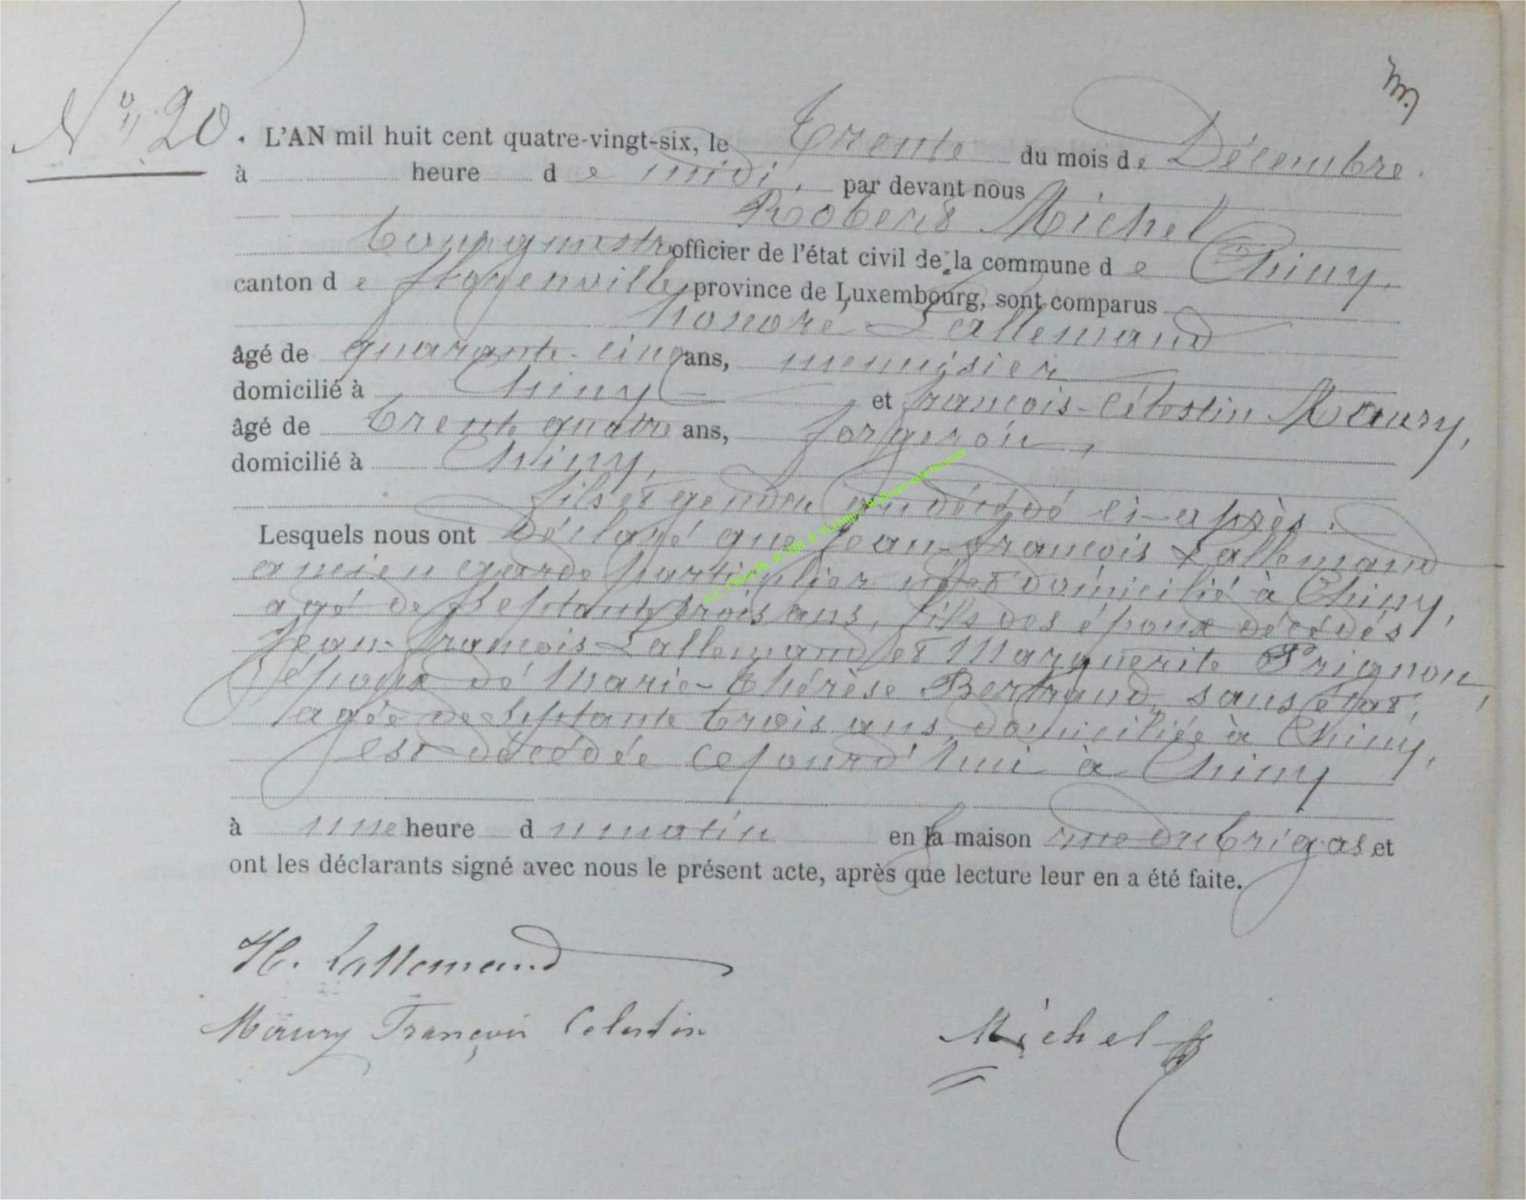 m
N° 20. L'AN mil huit cent quatre-vingt-six, le Trente du mois de Décembre.
à heure de midi, par devant nous
Robert Michel
bourgmestre officier de l'état civil de la commune de Chiny,
canton de florenville, province de Luxembourg, sont comparus
honoré Lallemand
âgé de quarante-cinq ans, menuisier
domicilié à Chiny et françois-Célestin Maury,
âgé de trente quatre ans, forgeron,
domicilié à Chiny,
fils et gendre du décédé ci-après.
Lesquels nous ont déclaré que Jean-françois Lallemand
ancien garde particulier né et domicilié à Chiny,
agé de septante trois ans, fils des époux décédés
Jean-françois Lallemand et Marguerite Prignon,
époux de Marie-thérèse Bertrand, sans état,
agée de septante trois ans, domiciliée à Chiny,
est décédée cejourd'hui à Chiny
à une heure du matin en la maison rue du brigas et
ont les déclarants signé avec nous le présent acte, après que lecture leur en a été faite.
H. Lallemand
Maury François Celestin
Michel